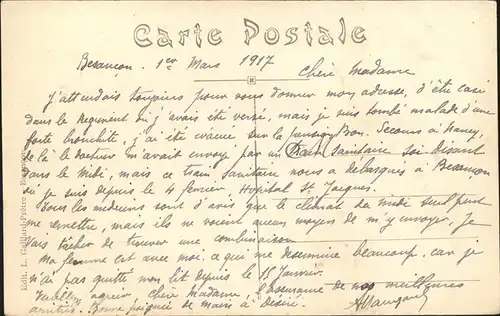 Carte Postale
Besançon. 1er Mars 1917
Chère Madame
J'attendais toujours pour vous donner mon adresse, d'être casé
dans le Régiment où j'avais été versé, mais je suis tombé malade d'une
forte bronchite, j'ai été évacué sur la Bon. Secours à Nancy,
de là le docteur m'avait envoyé par un train sanitaire soi-disant
dans le Midi, mais ce train sanitaire nous a débarqués à Besançon
où je suis depuis le 4 février, Hôpital St Jacques.
Tous les médecins sont d'avis que le climat du midi seul peut
me remettre, mais ils ne voient aucun moyen de m'y envoyer, je
vais tâcher de trouver une combinaison
Ma femme est avec moi, ce qui me beaucoup, car je
n'ai pas quitté mon lit depuis le 15 Janvier.
Veuillez agréer, Chère Madame, l'assurance de nos meilleures
amitiés. Bonne poignée de mains à Désiré.
Edit. L. Gaillard-Prêtre - Besançon